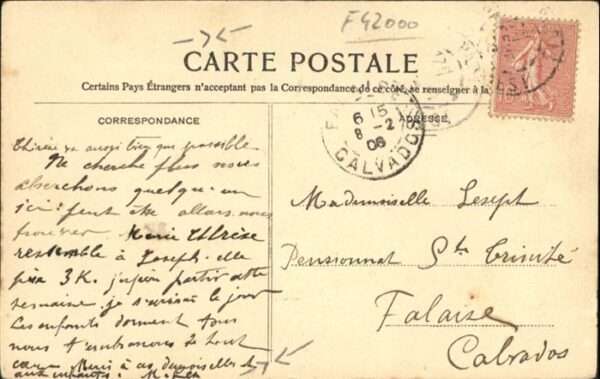 F42000
CARTE POSTALE
Certains Pays Étrangers n'acceptant pas la Correspondance de ce côté, se renseigner à la
CORRESPONDANCE
ADRESSE
6 15
8 - 2
06
CALVADOS
Thérèse va aussi bien que possible
Ne cherche plus nous
cherchons quelque-un
ici peut être allons-nous
trouver Marie Thérèse
ressemble à Joseph elle
pèse 3 K.
semaine je le jour
Les enfants dorment tous
nous t'embrassons de tout
Mademoiselle Joseph
Pensionnat Ste Trinité
Falaise
Calvados